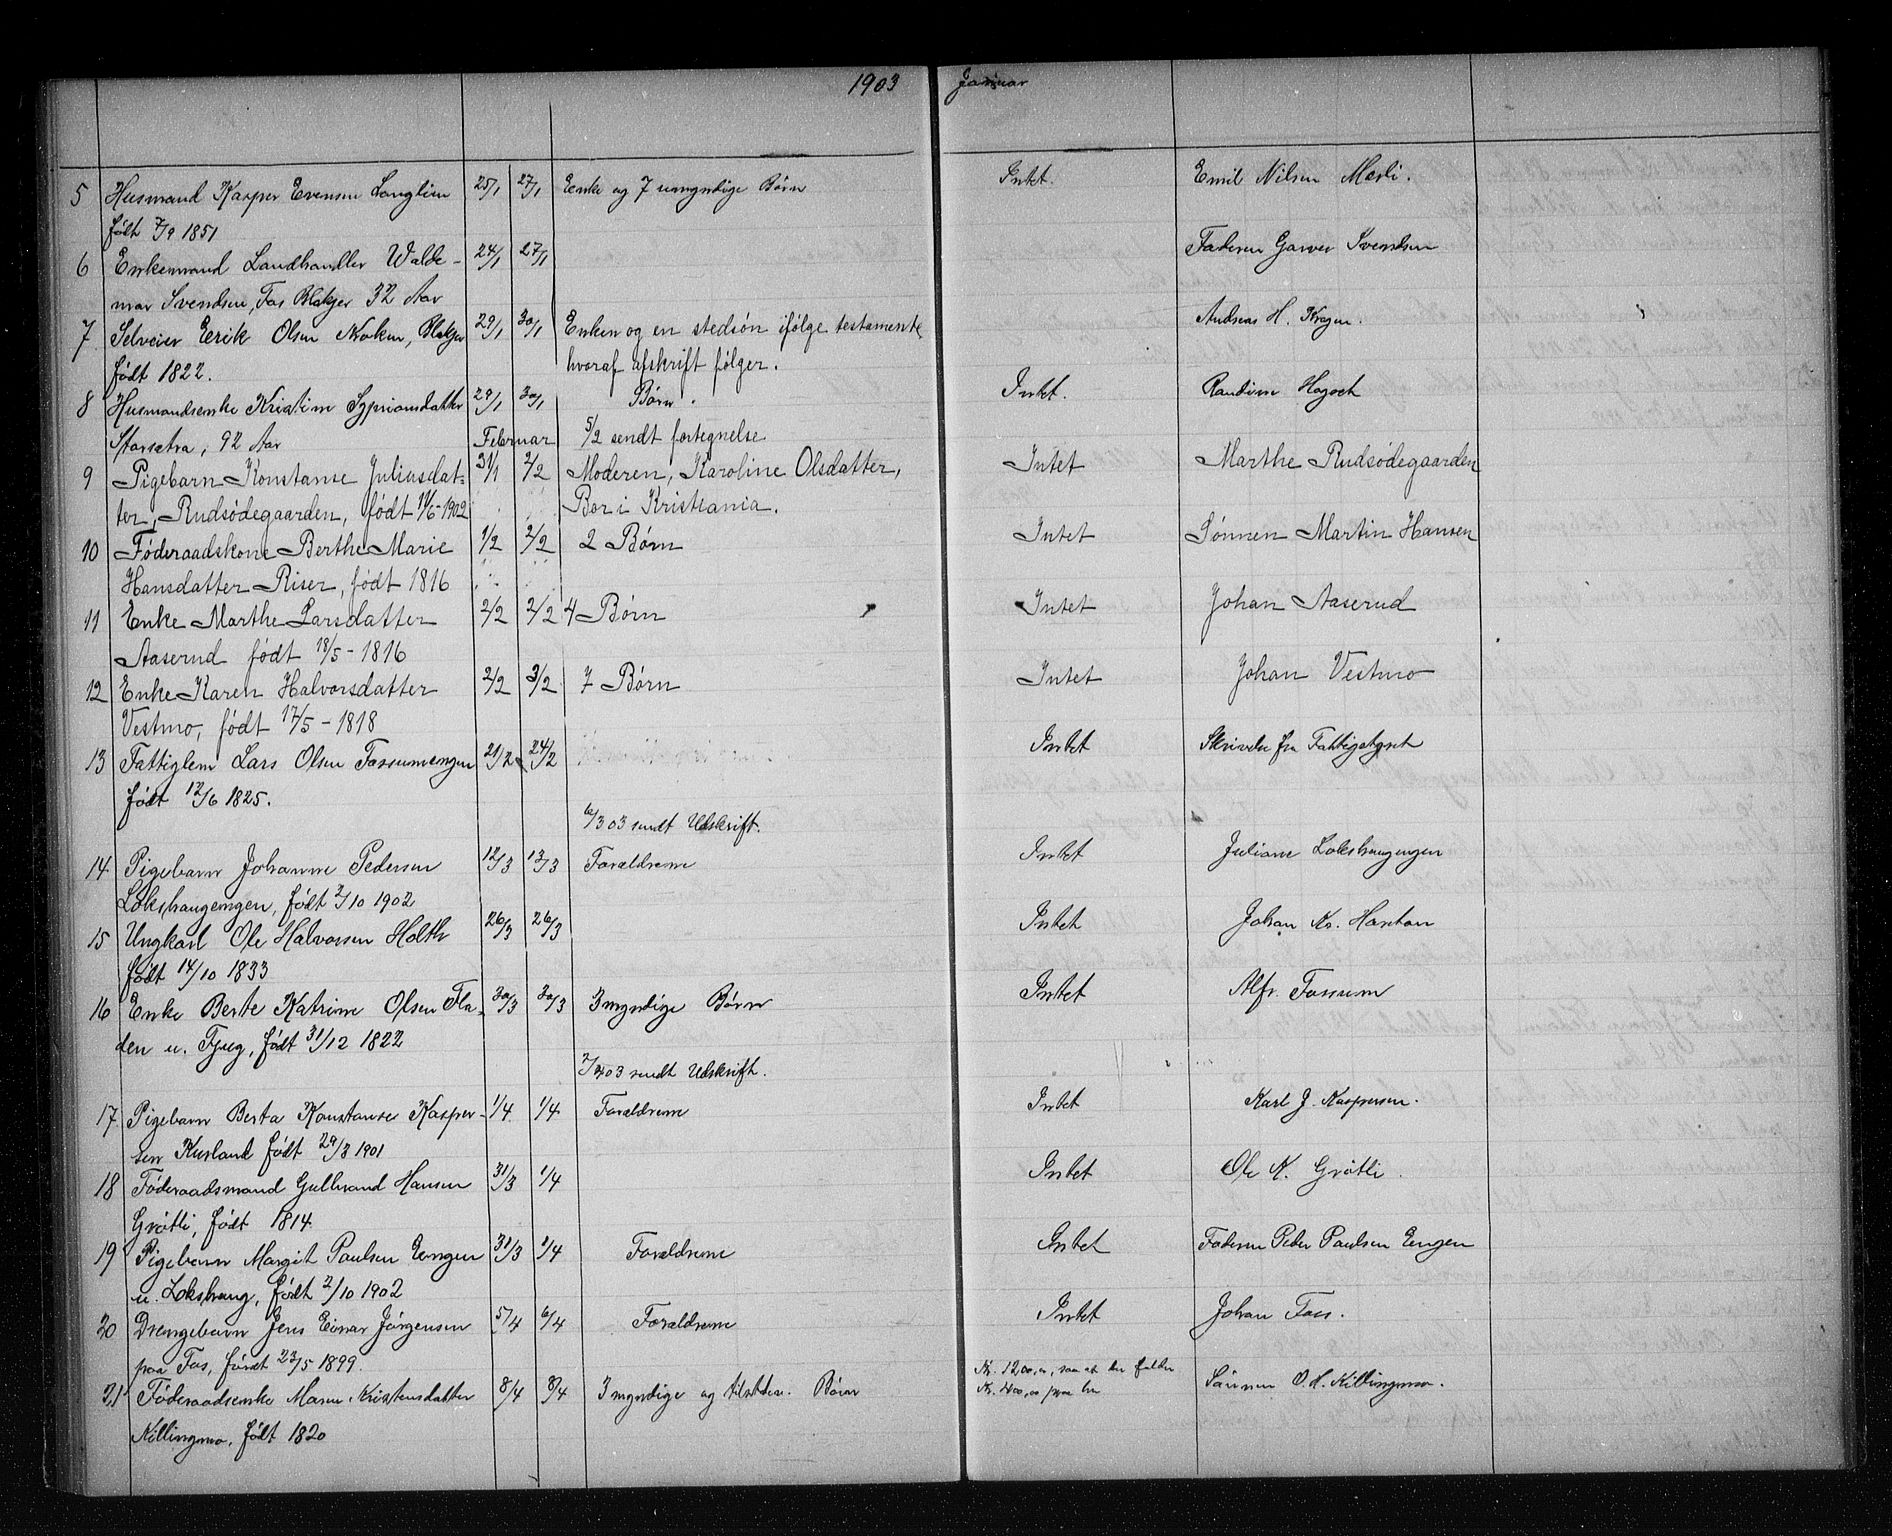 1903 Januar
5 Husmand Kasper Evensen Langlien 25/1 27/1 Enke og 7 umyndige Børn Intet. Emil Nilsen Merli.
født 7/9 1851
6 Enkemand Landhandler Walde- 24/1 27/1 Faderen Garver Svendsen
mar Svendsen, Fos Blakjer 32 Aar
7 Selveier Eerik Olsen Nroken, Blakjer 29/1 30/1 Enken og en stedsøn ifølge testamente Andreas H. Krogen.
født 1822. hvoraf afskrift følger.
8 Husmandsenke Kristine Sypriansdatter 29/1 30/1 Børn. Intet. Randine Hogset
Storsætra, 92 Aar Februar 5/2 sendt fortegnelse
9 Pigebarn Konstanse Juliusdat- 31/1 2/2 Moderen, Karoline Olsdatter, Intet Marthe Rudsødegaarden
ter, Rudsødegaarden, født 11/6-1902 Bor i Kristiania.
10 Føderaadskone Berthe Marie 1/2 2/2 2 Børn Intet Sønnen Martin Hansen
Hansdatter Riser, født 1816
11 Enke Marthe Larsdatter 2/2 2/2 4 Børn Intet Johan Aaserud
Aaserud født 18/5-1816
12 Enke Karen Halvorsdatter 2/2 3/2 7 Børn Intet Johan Vestmo
Vestmo, født 17/5-1818
13 Fattiglem Lars Olsen Fossumengen 21/2 24/2 Intet Skrivelse fra Fattigstyret
født 12/6 1825.
6/3 03 sendt Udskrift.
14 Pigebarn Johanne Pedersen 12/3 13/3 Forældrene Intet Juliane Lokshaugengen
Lokshaugengen, født 2/10 1902
15 Ungkarl Ole Halvorsen Holth 26/3 26/3 Intet Johan Kr. Harstan
født 14/10 1833
16 Enke Berte Katrine Olsen Fla- 30/3 30/3 3 myndige Børn Intet Alfr. Fossum
den u. Fjug, født 31/12 1822
2/4 03 sendt Udskrift.
17 Pigebarn Berta Konstanse Kasper- 1/4 1/4 Forældrene Intet Karl J. Kaspersen.
sen Kurland født 29/3 1901
18 Føderaadsmand Gulbrand Hansen 31/3 1/4 Intet Ole K. Grøtli.
Grøtli, født 1814
19 Pigebarn Margit Paulsen Eengen 31/3 1/4 Forældrene Intet Faderen Peder Paulsen Eengen
u. Lokshaug, født 2/10 1902
20 Drengebarn Jens Einar Jørgensen 5/4 6/4 Forældrene Intet Johan Foss.
paa Fos, født 23/5 1899.
21 Føderaadsenke Maren Kristensdatter 8/4 8/4 3 myndige og tilstede. Børn Kr. 1200,00, saa at der falder Kr. 400,00 paa hv Sønnen O. H. Killingmo.
Killingmo, født 1820